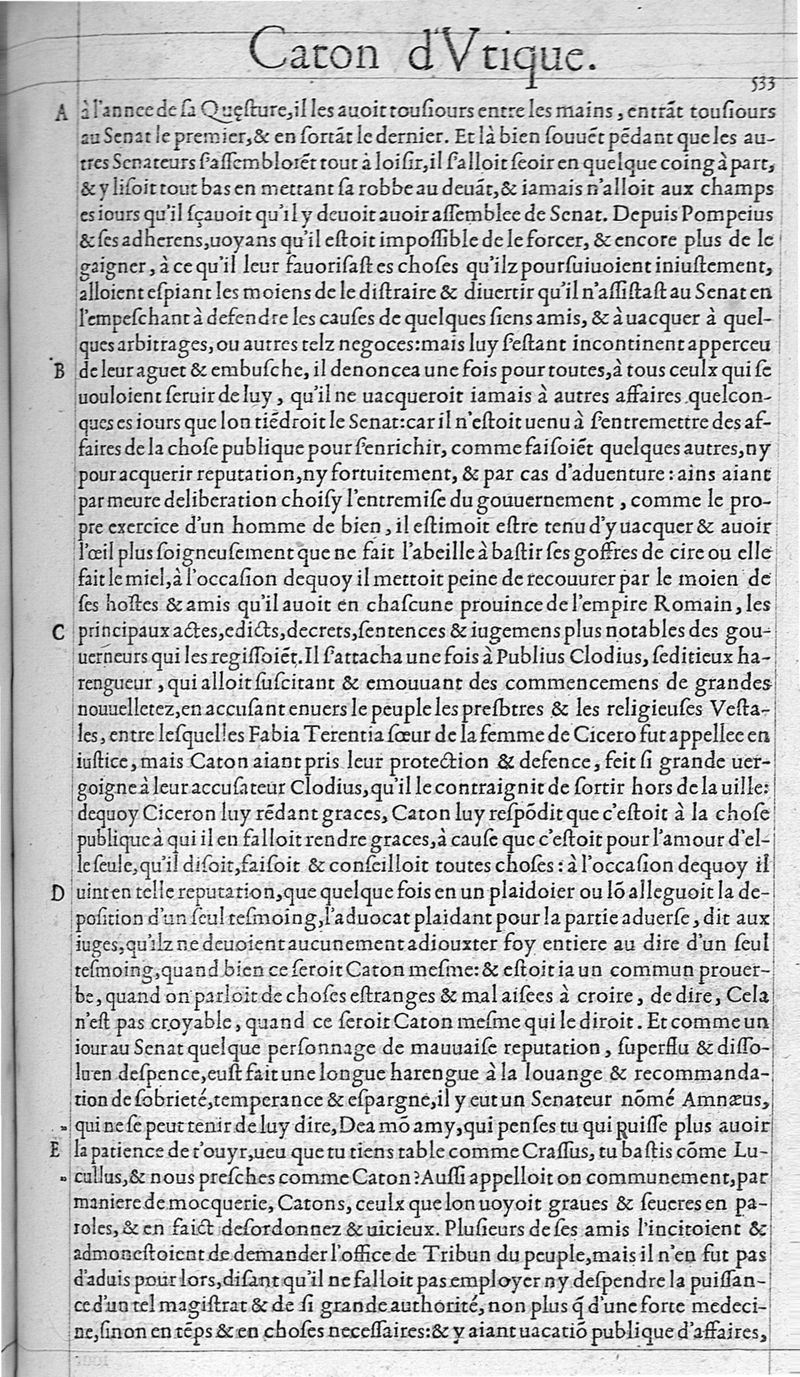 Caton d'Vtique.
533
A à l'annee de ſa Quęſture, il les auoit touſiours entre les mains, entrāt touſiours
au Senat le premier, & en ſortāt le dernier. Et là bien ſouuēt pēdant que les au-
tres Senateurs ſ'aſſembloiēt tout à loiſir, il ſ'alloit ſeoir en quelque coing à part,
& y liſoit tout bas en mettant ſa robbe au deuāt, & iamais n'alloit aux champs
es iours qu'il ſçauoit qu'il y deuoit auoir aſſemblee de Senat. Depuis Pompeius
& ſes adherens, uoyans qu'il eſtoit impoſſible de le forcer, & encore plus de le
gaigner, à ce qu'il leur fauoriſaſt es choſes qu'ilz pourſuiuoient iniuſtement,
alloient eſpiant les moiens de le diſtraire & diuertir qu'il n'aſſiſtaſt au Senat en
l'empeſchant à defendre les cauſes de quelques ſiens amis, & à uacquer à quel-
ques arbitrages, ou autres telz negoces: mais luy ſ'eſtant incontinent apperceu
B de leur aguet & embuſche, il denoncea une fois pour toutes, à tous ceulx qui ſe
uouloient ſeruir de luy, qu'il ne uacqueroit iamais à autres affaires quelcon-
ques es iours que lon tiēdroit le Senat: car il n'eſtoit uenu à ſ'entremettre des af-
faires de la choſe publique pour ſ'enrichir, comme faiſoiēt quelques autres, ny
pour acquerir reputation, ny fortuitement, & par cas d'aduenture: ains aiant
par meure deliberation choiſy l'entremiſe du gouuernement, comme le pro-
pre exercice d'un homme de bien, il eſtimoit eſtre tenu d'y uacquer & auoir
l'œil plus ſoigneuſement que ne fait l'abeille à baſtir ſes goffres de cire ou elle
fait le miel, à l'occaſion dequoy il mettoit peine de recouurer par le moien de
ſes hoſtes & amis qu'il auoit en chaſcune prouince de l'empire Romain, les
C principaux actes, edicts, decrets, ſentences & iugemens plus notables des gou-
uerneurs qui les regiſſoiēt. Il ſ'attacha une fois à Publius Clodius, ſeditieux ha-
rengueur, qui alloit ſuſcitant & emouuant des commencemens de grandes
nouuelletez, en accuſant enuers le peuple les preſbtres & les religieuſes Veſta-
les, entre leſquelles Fabia Terentia ſœur de la femme de Cicero fut appellee en
iuſtice, mais Caton aiant pris leur protection & defence, feit ſi grande uer-
goigne à leur accuſateur Clodius, qu'il le contraignit de ſortir hors de la uille:
dequoy Ciceron luy rēdant graces, Caton luy reſpōdit que c'eſtoit à la choſe
publique à qui il en falloit rendre graces, à cauſe que c'eſtoit pour l'amour d'el-
le ſeule, qu'il diſoit, faiſoit & conſeilloit toutes choſes: à l'occaſion dequoy il
D uint en telle reputation, que quelque fois en un plaidoier ou lō alleguoit la de-
poſition d'un ſeul teſmoing, l'aduocat plaidant pour la partie aduerſe, dit aux
iuges, qu'ilz ne deuoient aucunement adiouxter foy entiere au dire d'un ſeul
teſmoing, quand bien ce ſeroit Caton meſme: & eſtoit ia un commun prouer-
be, quand on parloit de choſes eſtranges & mal aiſees à croire, de dire, Cela
n'eſt pas croyable, quand ce ſeroit Caton meſme qui le diroit. Et comme un
iour au Senat quelque perſonnage de mauuaiſe reputation, ſuperflu & diſſo-
lu en deſpence, euſt fait une longue harengue à la louange & recommanda-
tion de ſobrieté, temperance & eſpargne, il y eut un Senateur nōmé Amnæus,
" qui ne ſe peut tenir de luy dire, Dea mō amy, qui penſes tu qui puiſſe plus auoir
E la patience de t'ouyr, ueu que tu tiens table comme Craſſus, tu baſtis cōme Lu-
" cullus, & nous preſches comme Caton? Auſſi appelloit on communement, par
maniere de mocquerie, Catons, ceulx que lon uoyoit graues & ſeueres en pa-
roles, & en faict deſordonnez & uicieux. Pluſieurs de ſes amis l'incitoient &
admoneſtoient de demander l'office de Tribun du peuple, mais il n'en fut pas
d'aduis pour lors, diſant qu'il ne falloit pas employer ny deſpendre la puiſſan-
ce d'un tel magiſtrat & de ſi grande authorité, non plus q̃ d'une forte medeci-
ne, ſinon en tēps & en choſes neceſſaires: & y aiant uacatiō publique d'affaires,